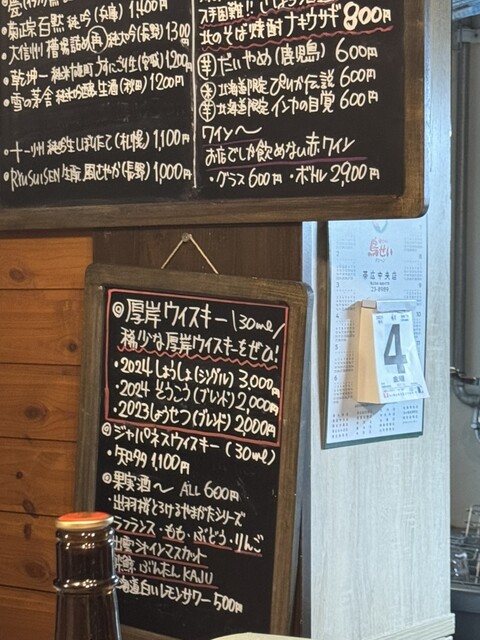 菊正宗 百黙 純吟(兵庫) 1,400円
大信州 槽場詰め 純大吟(長野) 1300
乾坤一 純米 うすにごり生(宮城) 1,200円
雪の茅舎 純吟 生酒(秋田) 1200円
十一州 純吟生 しぼりたて(札幌) 1,100円
RYUSUISEN 生酛 風さやか(長野) 1,000円
北のそば焼酎 ナキウサギ 800円
だいやめ(鹿児島) 600円
北海道限定 ぴりか伝説 600円
北海道限定 インカの目覚 600円
ワイン〜
お店でしか飲めない赤ワイン
・グラス 600円 ・ボトル 2,900円
◎厚岸ウイスキー(30ml)
稀少な厚岸ウイスキーをぜひ!
・2024 しょうしょ(シングル) 3,000円
・2024 そうこう(ブレンド) 2,000円
・2023 しょうせつ(ブレンド) 2,000円
◎ジャパネスウイスキー(30ml)
・知多 1,100円
◎果実酒〜 ALL 600円
・出羽桜とろけるやまがたシリーズ
ラフランス・もも・ぶどう・りんご
出雲シャインマスカット
ぶんたん KAJU
北海道白いレモンサワー 500円
鳥せい
帯広中央店
4
金曜